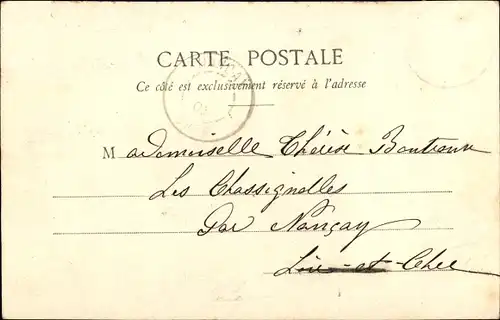 CARTE POSTALE
Ce côté est exclusivement réservé à l'adresse
Mademoiselle Thérèse
Les Chassignolles
Par Nançay
et-Cher